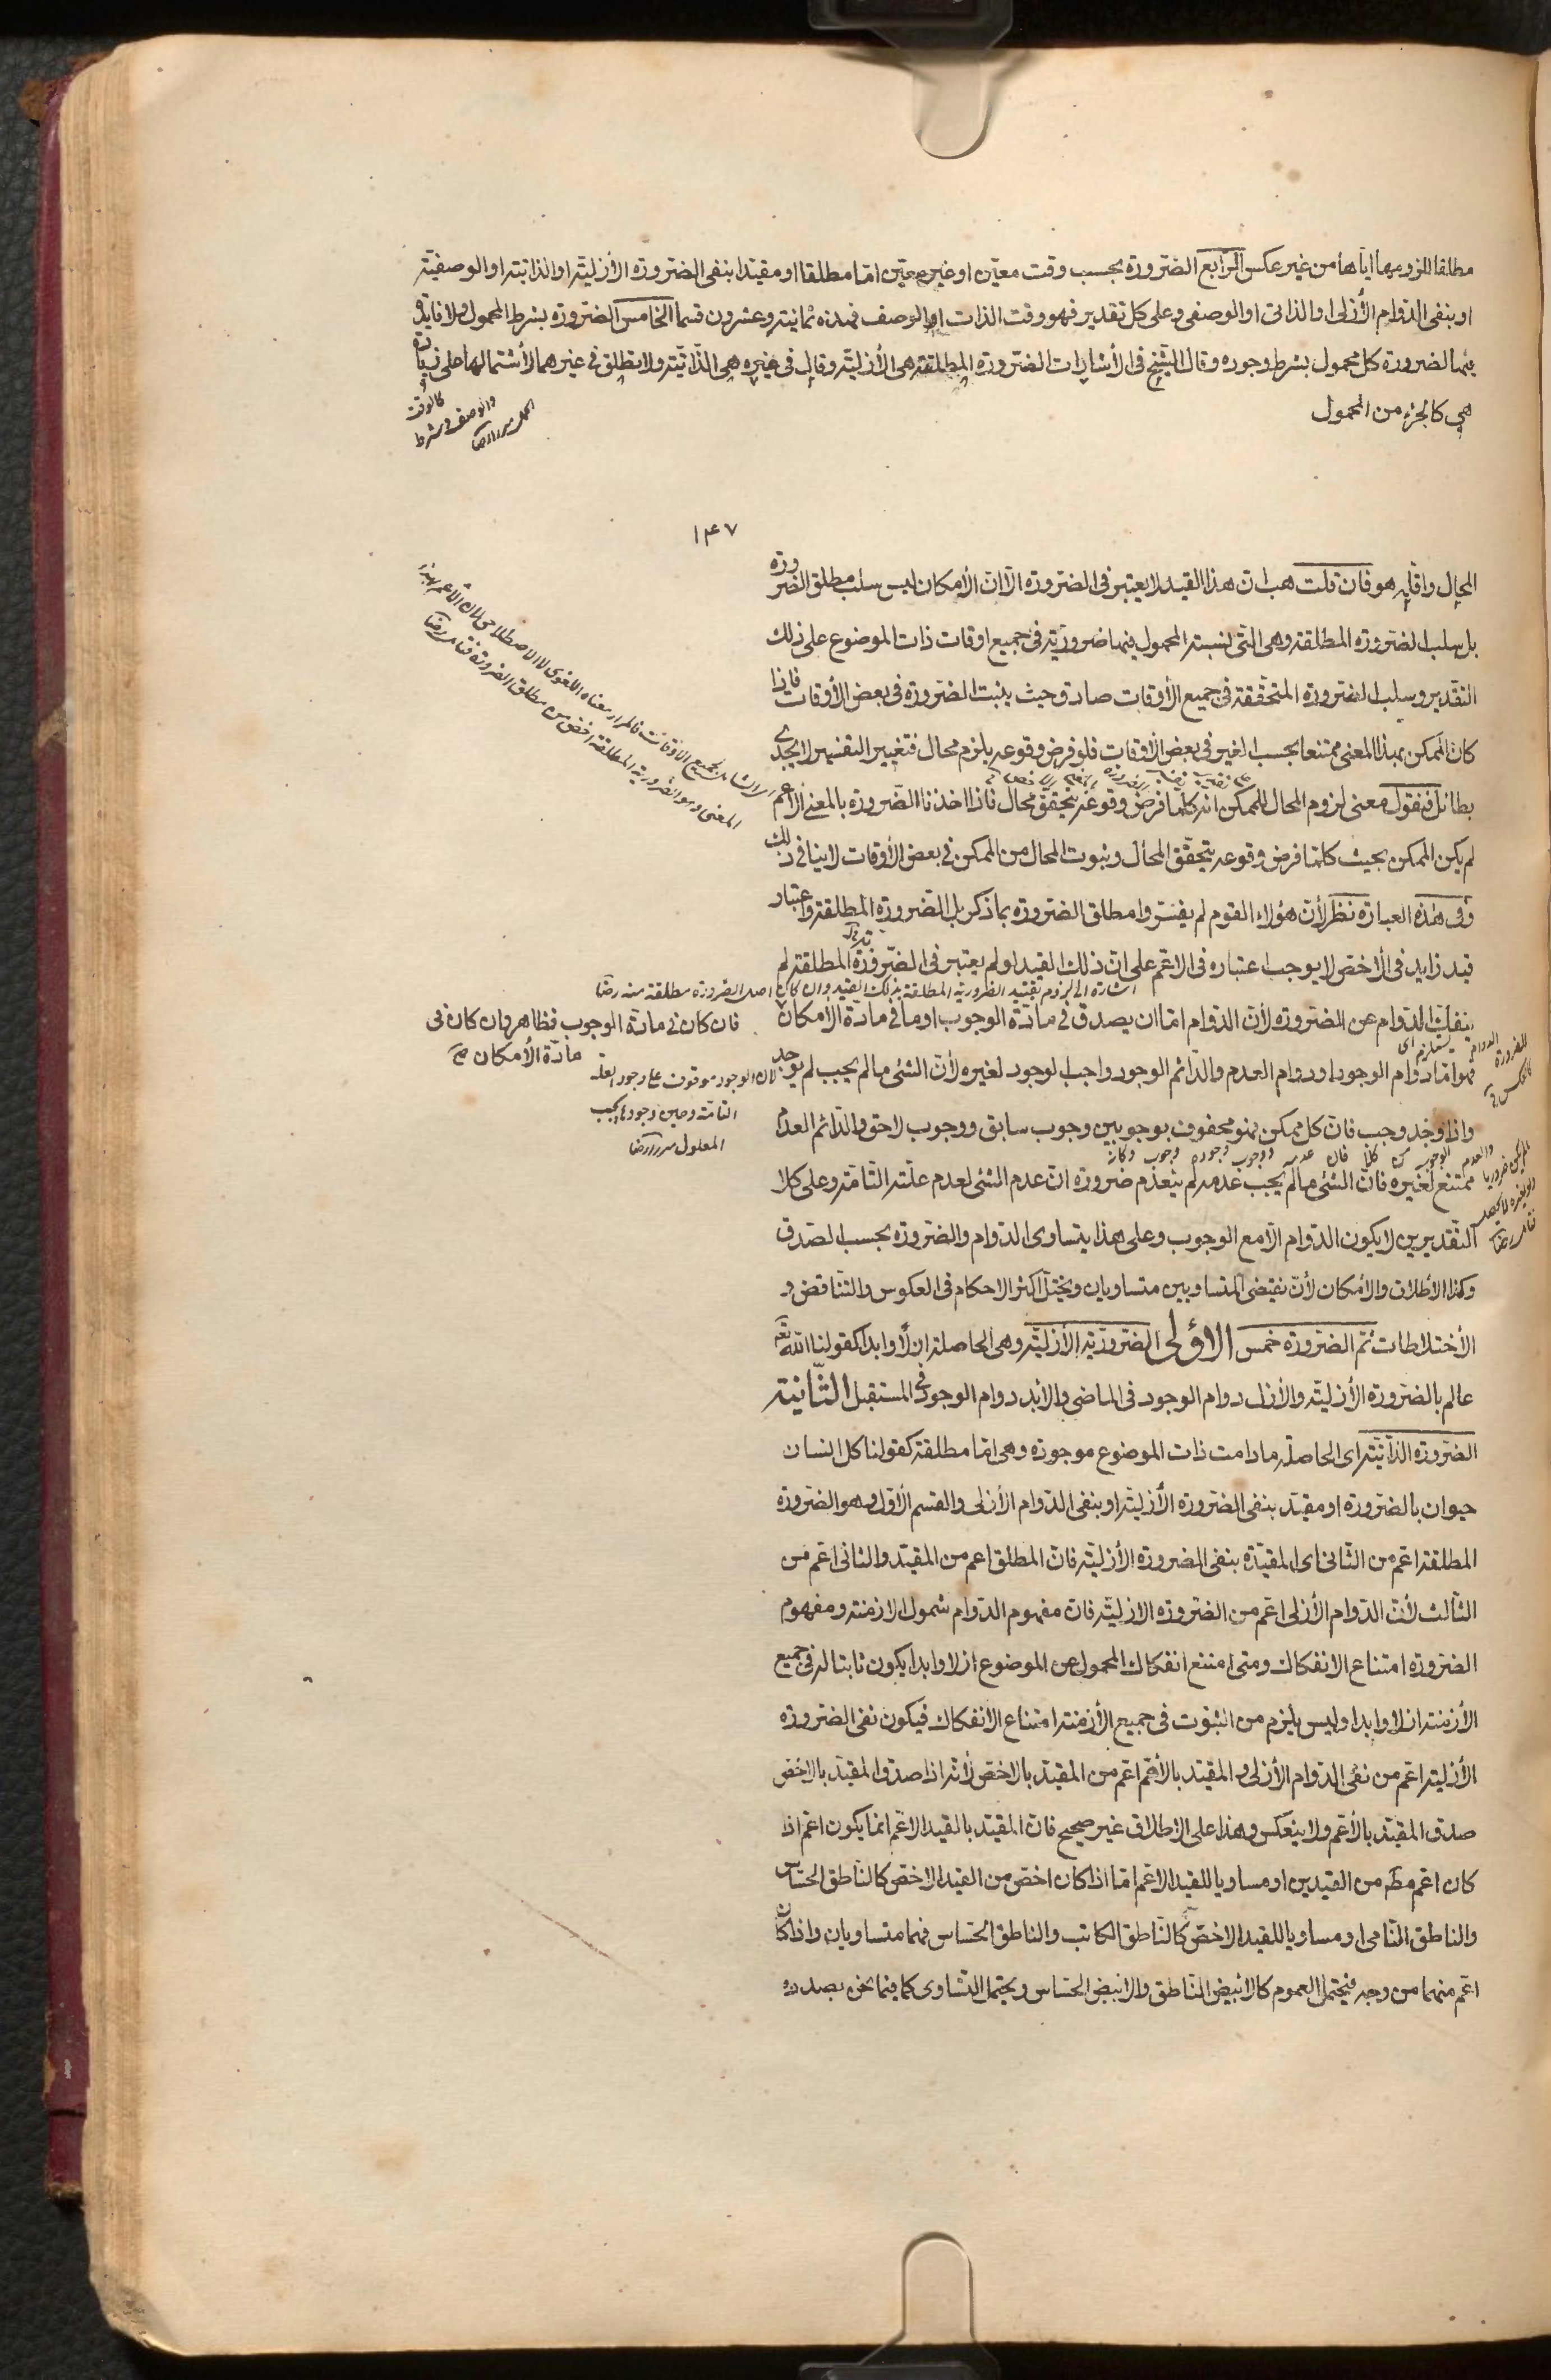 مطلقا للزومها اياها من غير عكس الرابع الضرورة بحسب وقت معين او غير معين اما مطلقا او مقيدا بنفي الضرورة الأزلية او الذاتية او الوصفية
او بنفي الدوام الأزلي او الذاتي او الوصفي وعلى كل تقدير فهو وقت الذات او الوصف فهذه ثمانية وعشرون قسما الخامس الضرورة بشرط المحمول ولا فايدة
فيها لضرورة كل محمول بشرط وجوده وقال الشيخ في الأشارات الضرورة المطلقة هي الأزلية وقال في غيره هي الذاتية ولا يطلق في غيرهما لأشتمالها على زيادة
هي كالجزء من المحمول
كالوقت
والوصف وشرط
١٤٧
المحال واقله هو فان قلت هب ان هذا القيد لا يعتبر في الضرورة الا ان الأمكان ليس سلب مطلق الضرورة
بل سلب الضرورة المطلقة وهي التي نسبة المحمول فيها ضرورية في جميع اوقات ذات الموضوع على ذلك
التقدير وسلب الضرورة المتحققة في جميع الأوقات صادق حيث يثبت الضرورة في بعض الأوقات فاذا
كان الممكن بهذا المعنى ممتنعا بحسب الغير في بعض الأوقات فلو فرض وقوعه يلزم محال فتغيير التفسير لا يجدى
بطائل فنقول معنى لزوم المحال للممكن انه كلما فرض وقوعه يتحقق محال فاذا اخذنا الضرورة بالمعنى الأعم
لم يكن الممكن بحيث كلما فرض وقوعه يتحقق المحال وثبوت المحال من الممكن في بعض الأوقات لا ينافي ذلك
وفي هذه العبارة نظر لأن هؤلاء القوم لم يفسروا مطلق الضرورة بما ذكر بل الضرورة المطلقة واعتبار
قيد زايد في الأخص لا يوجب اعتباره في الاعم على ان ذلك القيد لو لم يعتبر في الضرورة المطلقة لم
اشارة الى لزوم تقييد الضرورية المطلقة بذلك القيد وان كان اصل الضرورة مطلقة منه رضا
ينفك الدوام عن الضرورة لأن الدوام اما ان يصدق في مادة الوجوب او ما في مادة الأمكان
فان كان في مادة الوجوب فظاهر وان كان في
مادة الأمكان صح
فهو اما دوام الوجود او دوام العدم والدائم الوجود واجب الوجود لغيره لأن الشئ ما لم يجب لم يوجد
لان الوجود موقوف على وجود العلة
التامة وحين وجودها يجب
المعلول
واذا وجد وجب فان كل ممكن فهو محفوف بوجوبين وجوب سابق ووجوب لاحق والدائم العدم
ممتنع لغيره فان الشئ ما لم يجب عدمه لم ينعدم ضرورة ان عدم الشئ لعدم علته التامة وعلى كلا
التقديرين لا يكون الدوام الا مع الوجوب وعلى هذا يتساوى الدوام والضرورة بحسب الصدق
وكذا الأطلاق والأمكان لأن نقيضي المتساويين متساويان ويختل اكثر الاحكام في العكوس والتناقض و
الأختلاطات ثم الضرورة خمس الاولى الضرورية الأزلية وهي الحاصلة ازلا وابدا كقولنا الله تع
عالم بالضرورة الأزلية والأزل دوام الوجود في الماضي والابد دوام الوجود في المستقبل الثانية
الضرورة الذاتية اى الحاصلة ما دامت ذات الموضوع موجودة وهي اما مطلقة كقولنا كل انسان
حيوان بالضرورة او مقيد بنفي الضرورة الأزلية او بنفي الدوام الأزلي والقسم الأول وهو الضرورة
المطلقة اعم من الثاني اى المقيدة بنفي الضرورة الأزلية فان المطلق اعم من المقيد والثاني اعم من
الثالث لأن الدوام الأزلي اعم من الضرورة الازلية فان مفهوم الدوام شمول الازمنة ومفهوم
الضرورة امتناع الانفكاك ومتى امتنع انفكاك المحمول عن الموضوع ازلا وابدا يكون ثابتا له في جميع
الأزمنة ازلا وابدا وليس يلزم من الثبوت في جميع الأزمنة امتناع الانفكاك فيكون نفي الضرورة
الأزلية اعم من نفي الدوام الأزلي والمقيد بالأعم اعم من المقيد بالاخص لأنه اذا صدق المقيد بالاخص
صدق المقيد بالأعم ولا ينعكس وهذا على الاطلاق غير صحيح فان المقيد بالقيد الاعم انما يكون اعم اذا
كان اعم مط من القيدين او مساويا للقيد الاعم اما اذا كان اخص من القيد الاخص كالناطق الحساس
والناطق النامي او مساويا للقيد الاخص كالناطق الكاتب والناطق الحساس فهما متساويان واذا كان
اعم منهما من وجه فيحتمل العموم كالابيض الناطق والابيض الحساس ويحتمل التساوى كما فيما نحن بصدده